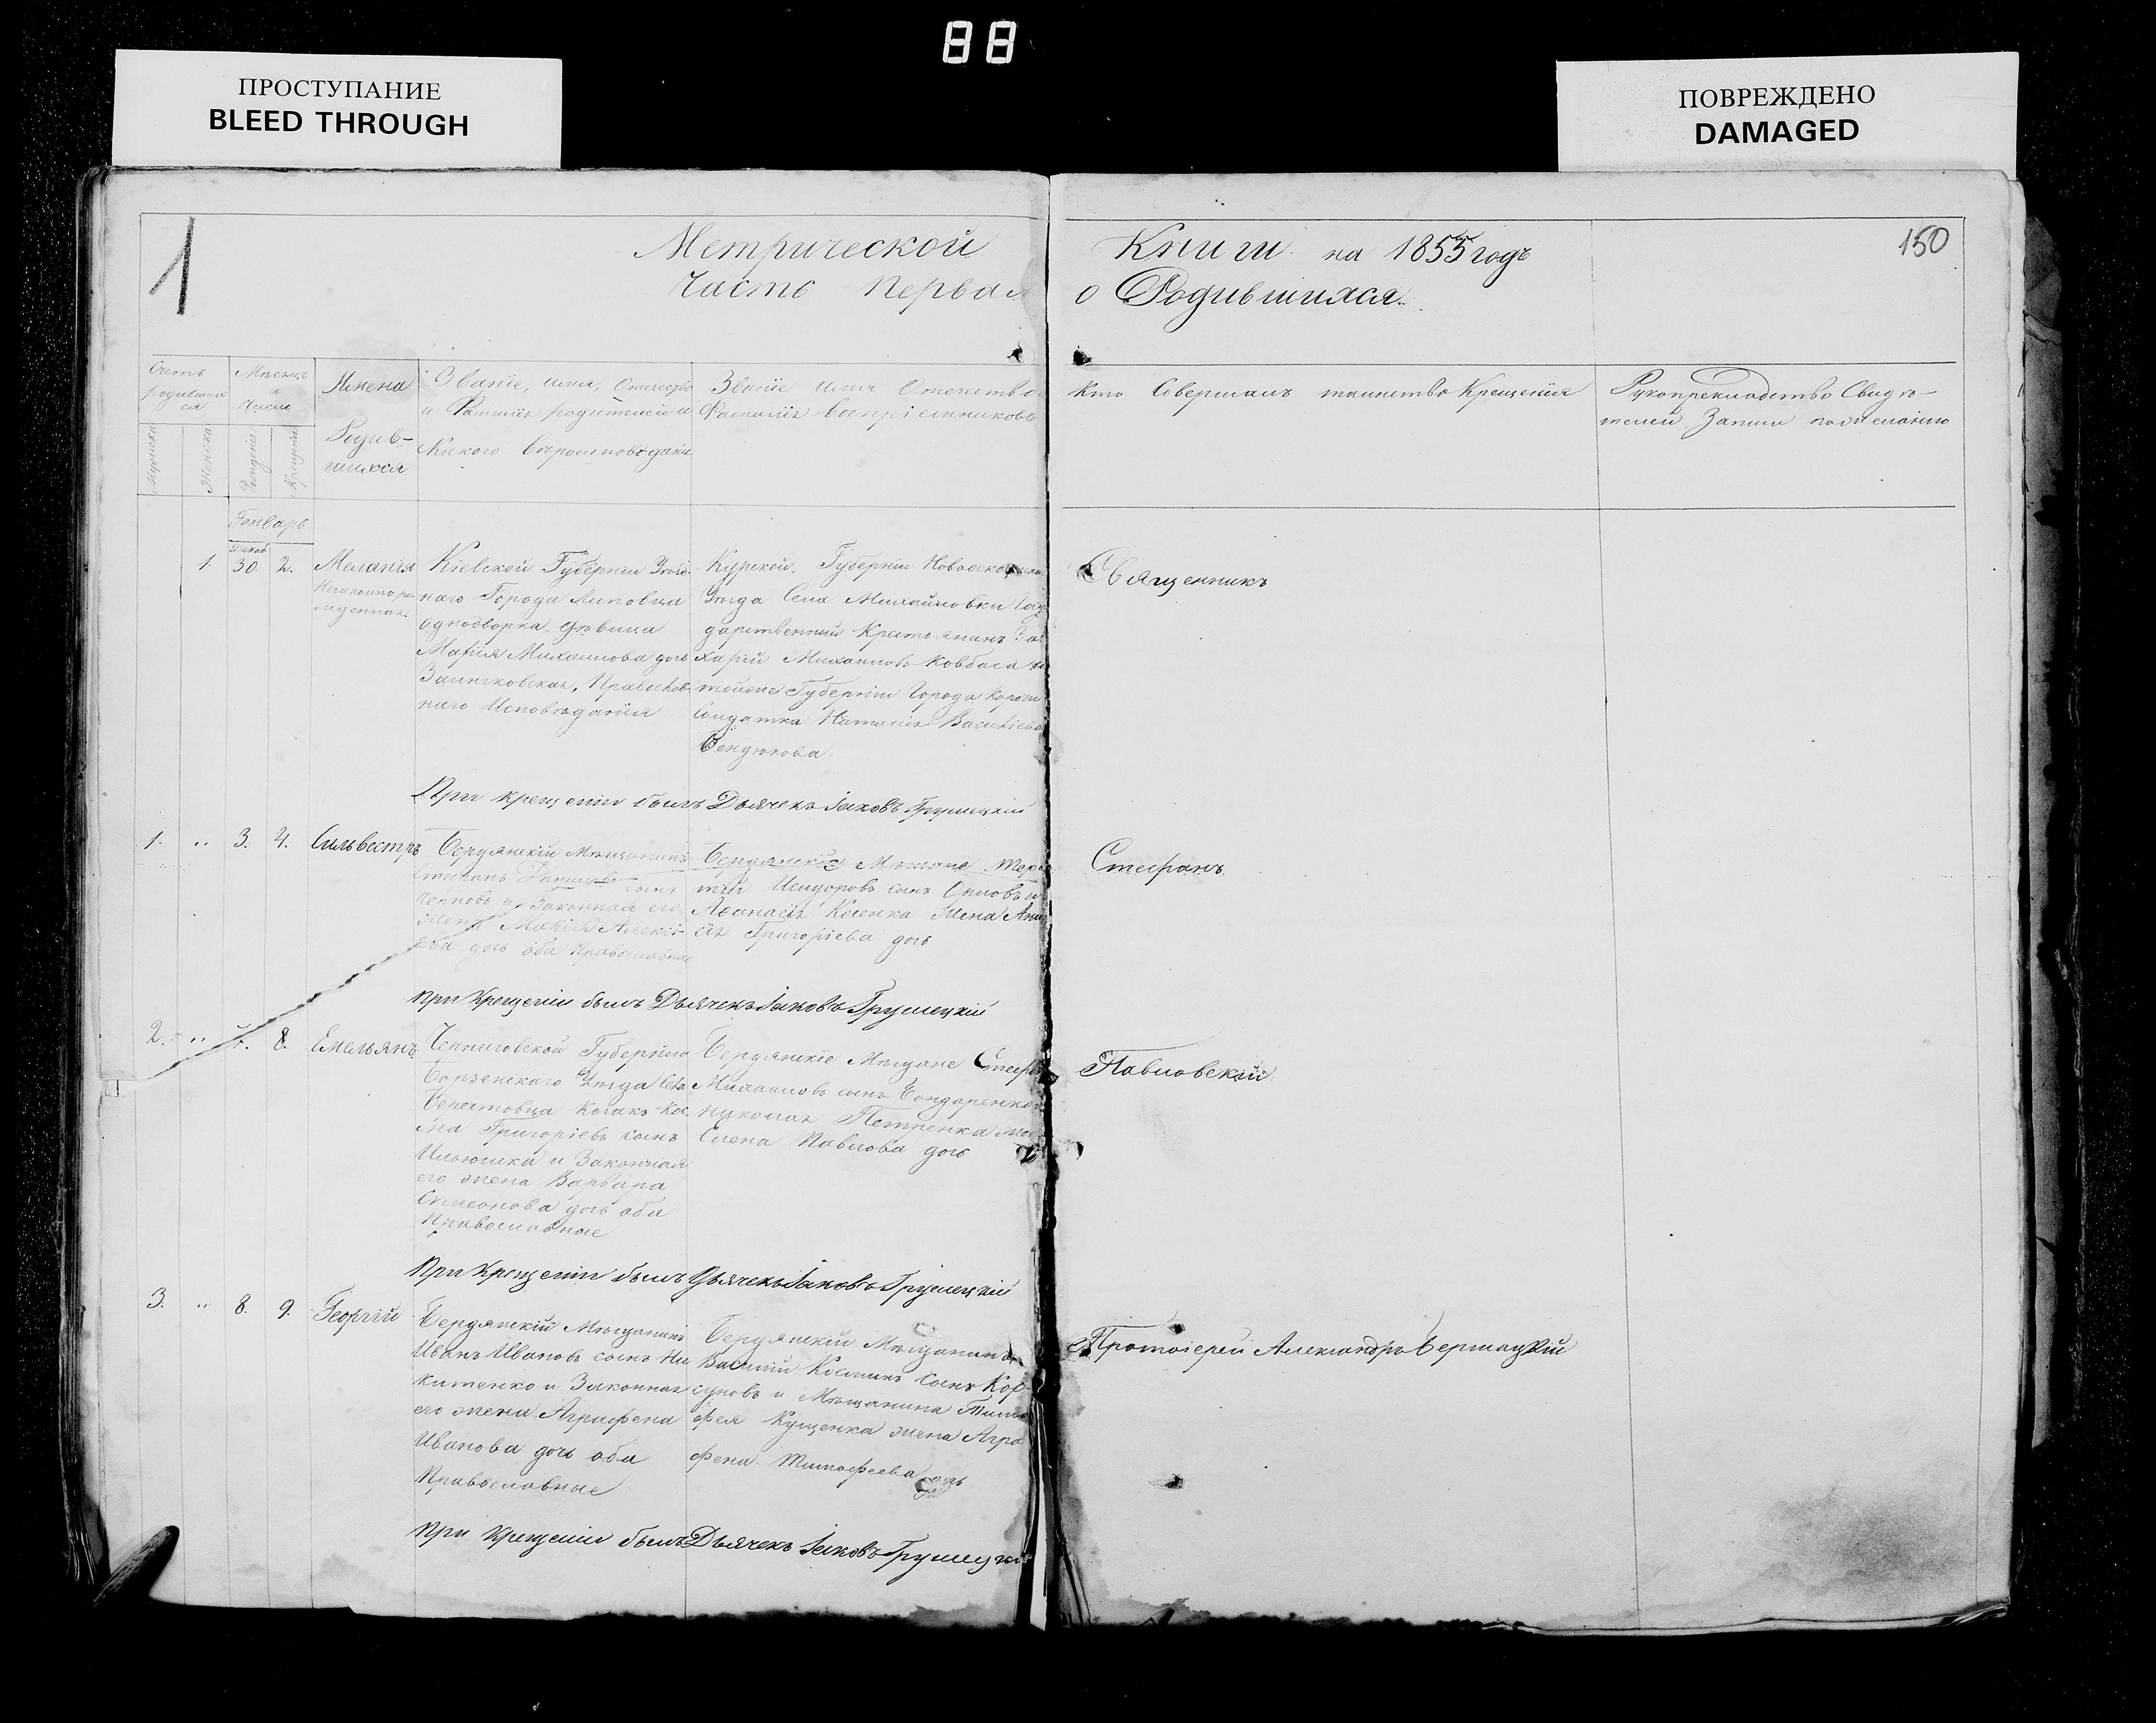 88
ПРОСТУПАНИЕ
BLEED THROUGH
ПОВРЕЖДЕНО
DAMAGED
1
150
Метрической Книги на 1855 годъ
Часть Первая о Родившихся.
Счетъ родившихся
Мѣсяцъ и Число
Имена Родив-
шихся
Званіе, имя, Отечество
и Фамилія родителей и
Какого вѣроисповѣданія
Званіе имя Отечество
Фамилія воспріемниковъ
Кто Совершалъ таинство Крещенія
Рукоприкладство Свидѣ-
телей Записи по желанію
Мужеска
Женска
Рожденія
Крещенія
Генварь
Декаб.
1. 30. 2. Меланія
Незаконно ро-
жденная
Кіевской Губерніи Уѣзд-
наго Города Липовца
Однодворка дѣвица
Марія Михаилова дочь
Православ-
наго Исповѣданія
Курской Губерніи
Уѣзда Села Михайловки Госу
дарственный Крестьянинъ За
харій Михаиловъ Ковбаса и
тойже Губерніи Города Короч
Солдатка Наталія Василіева
Священникъ
При крещеніи былъ Дьячекъ Іаковъ Грушецкій
1. " 3. 4. Сильвестръ
Бердянскій Мѣщанинъ
Стефанъ сынъ
и Законная его
жена Марія Алексі-
ева дочь оба Православные
Бердянскіе Мѣщане
Исидоровъ сынъ Орловъ и
Аѳанасія Косенка жена
Григоріева дочь
Стефанъ
При Крещеніи былъ Дьячекъ Іаковъ Грушецкій
2. " 8. Емельянъ
Черниговской Губерніи
Борзенскаго Уѣзда Села
Козакъ Кос
ма Григоріевъ сынъ
Ильюшка и Законная
его жена Варвара
Симеонова дочь оба
Православные
Бердянскіе Мѣщане Стеф
Михаиловъ сынъ Бондаренко и
Николая Петренка жена
Елена Павлова дочь
Павловскій
При Крещеніи былъ Дьячекъ Іаковъ Грушецкій
3. " 8. 9. Георгій
Бердянскій Мѣщанинъ
Иванъ Ивановъ сынъ Ни
китенко и Законная
его жена Агрифена
Иванова дочь оба
Православные
Бердянскій Мѣщанинъ
Василій Косминъ сынъ Кор-
суновъ и Мѣщанина Тимо
фея Куценка жена Агра
фена Тимофеева дочь
Протоіерей Александръ
При Крещеніи былъ Дьячекъ Іаковъ Грушецкій